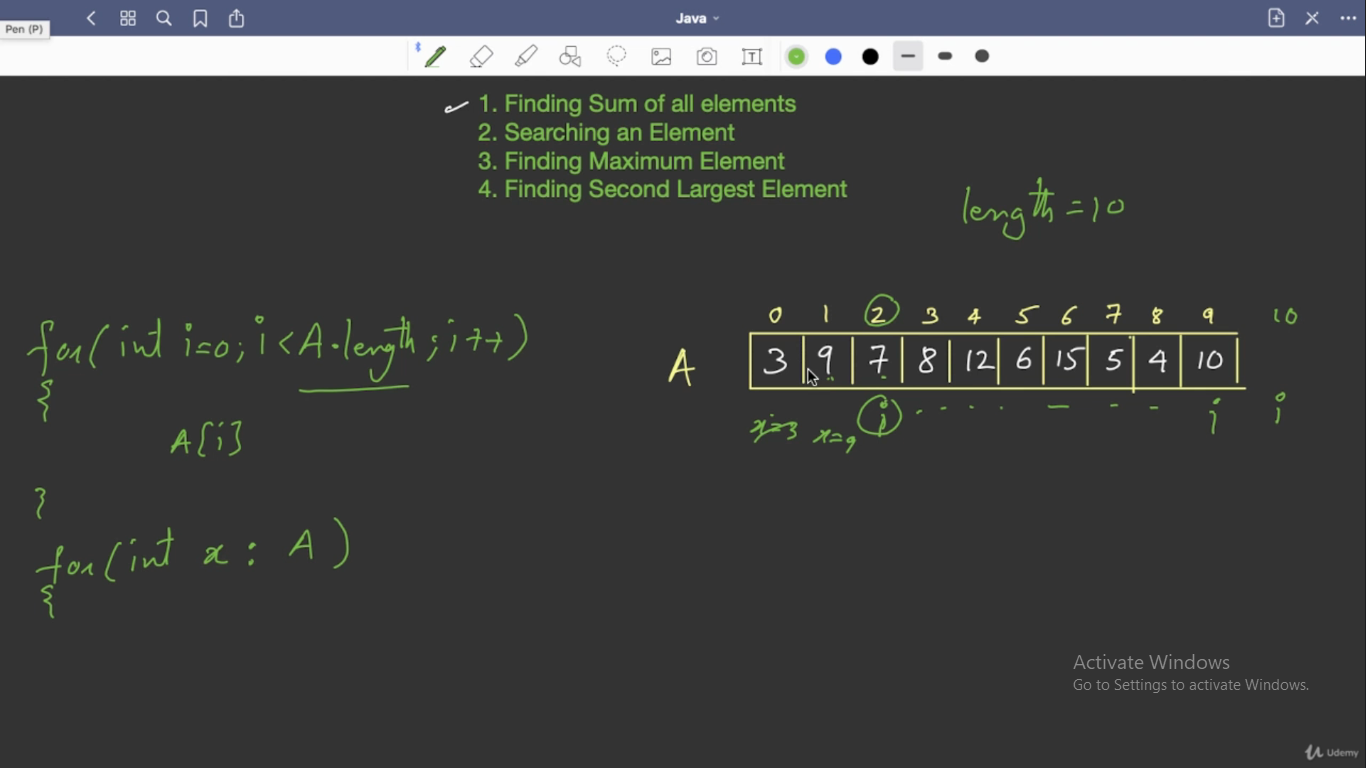 Pen (P)
Java
T
1. Finding Sum of all elements
2. Searching an Element
3. Finding Maximum Element
4. Finding Second Largest Element
length = 10
for(int i=0; i<A.length; i++)
{
A[i]
}
for(int x : A)
{
0 1 2 3 4 5 6 7 8 9 10
A 3 9 7 8 12 6 15 5 4 10
x=3 x=9 i i i
Activate Windows
Go to Settings to activate Windows.
Udemy